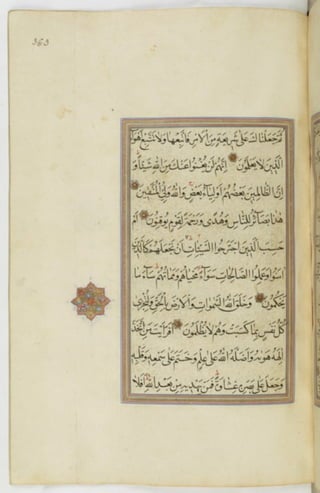 363
ثم جعلناك على شريعة من الامر فاتبعها ولا تتبع اهواء
الذين لا يعلمون انهم لن يغنوا عنك من الله شيئا و
ان الظالمين بعضهم اولياء بعض والله ولي المتقين
هذا بصائر للناس وهدى ورحمة لقوم يوقنون ام
حسب الذين اجترحوا السيئات ان نجعلهم كالذين
امنوا وعملوا الصالحات سواء محياهم ومماتهم ساء ما
يحكمون وخلق الله السموات والارض بالحق ولتجزى
كل نفس بما كسبت وهم لا يظلمون افرايت من اتخذ
الهه هويه واضله الله على علم وختم على سمعه وقلبه
وجعل على بصره غشاوة فمن يهديه من بعد الله افلا